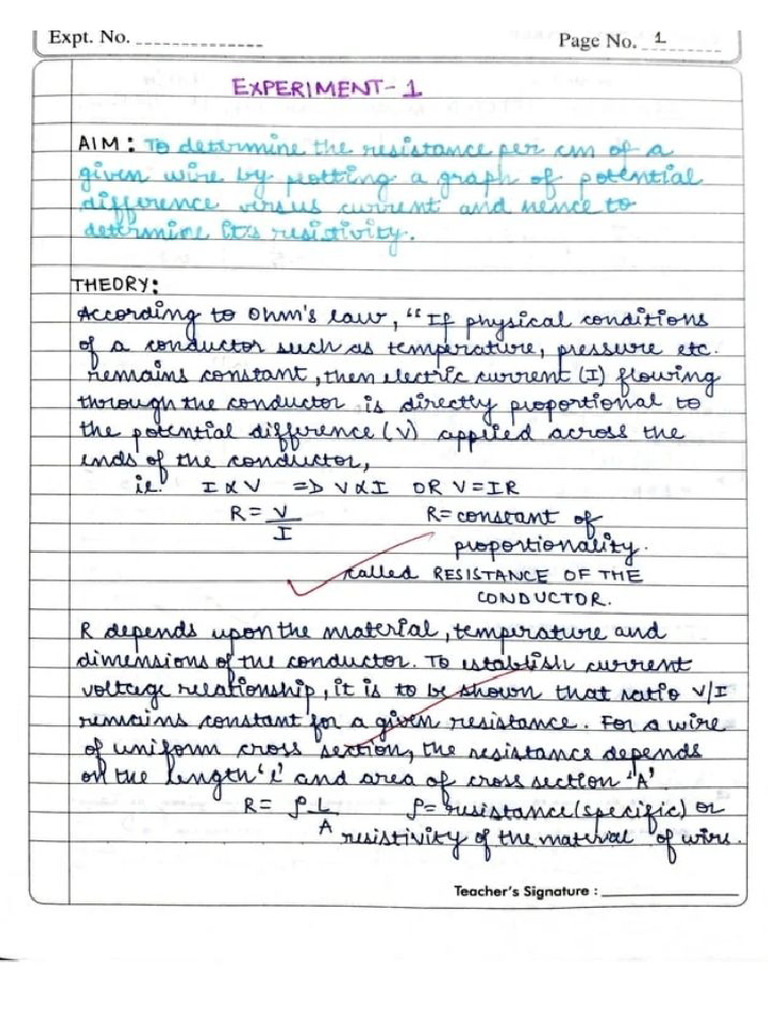 Expt. No.
Page No. 1
EXPERIMENT-1
AIM: To determine the resistance per cm of a
given wire by plotting a graph of potential
difference versus current and hence to
determine its resistivity.
THEORY:
According to Ohm's law, "If physical conditions
of a conductor such as temperature, pressure etc.
remains constant, then electric current (I) flowing
through the conductor is directly proportional to
the potential difference (V) applied across the
ends of the conductor,
ie. I ∝ V => V ∝ I OR V = IR
R = V/I R = constant of
proportionality.
called RESISTANCE OF THE
CONDUCTOR.
R depends upon the material, temperature and
dimensions of the conductor. To establish current
voltage relationship, it is to be shown that ratio V/I
remains constant for a given resistance. For a wire
of uniform cross section, the resistance depends
on the length 'l' and area of cross section 'A'.
R = ρ L/A ρ = resistance (specific) or
resistivity of the material of wire.
Teacher's Signature :